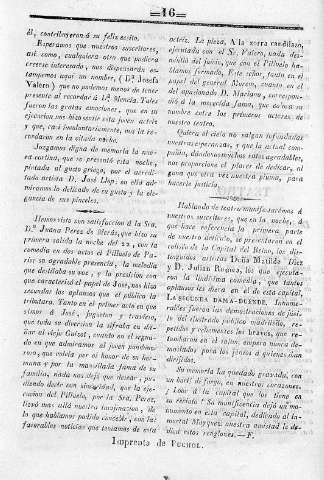 =16=
él, contribuyeron á su feliz éxito.
Esperamos que nuestros suscritores,
así como, cualquiera otro que pudiera
creerse interesado, nos dispensarán es-
tampemos aquí un nombre, (D.ª Josefa
Valero) que no podemos menos de tener
presente al recordar á D.ª Mencía. Tales
fueron las gratas emociones, que en su
ejecucion nos hizo sentir esta jóven actriz
y que, casi involuntariamente, nos la re-
cordaron en la citada noche.
Juzgamos digna de memoria la nue-
va cortina, que se presentó esta noche,
pintada al gusto griego, por el acredi-
tado artista D. José Llop: en ella ad-
miramos lo delicado de su gusto y la ele-
gancia de sus pinceles.
Hemos visto con satisfaccion á la Sra.
D.ª Juana Perez de Merás, que hizo su
primera salida la noche del 22, con la
comedia en dos actos el Pilluelo de Pa-
rís: su agradable presencia, la melodía
que destilaba su voz, y la precision con
que caracterizó el papel de José, nos hizo
secundar los aplausos que el público la
tributara. Tanto en el primer acto en que
vimos á José, jugueton y travieso,
que toda su diversion la cifraba en di-
far el viejo Guizot, cuanto en el segun-
do en que admiramos al joven pundono-
roso, que volvia por el honor de su her-
mana y por la mancillada fama de su
familia, nada nos dejó que desear; por
lo tanto decimos sin parcialidad, que la eje-
cucion del Pilluelo, por la Sra. Perez,
llevó mas allá nuestra imaginacion, de
lo que habíamos podido concebir, con las
favorables noticias que teníamos de esta
actriz. La pieza, A la zorra candilazo,
ejecutada con el Sr. Valero, nada des-
dijo del concepto, que con el Pilluelo ha-
bíamos formado. Este señor, tanto en el
papel del general Morem, cuanto en el
del apasionado D. Mariano, correspon-
dió á la merecida fama, que coloca su
nombre entre los primeros actores de
nuestro reino.
Quiera el cielo no salgan infundadas
nuestras esperanzas, y que la actual com-
pañía, dándonos muchos ratos agradables,
nos proporcione el placer de dedicar, al-
guna vez que otra, nuestra pluma, para
hacerle justicia.
Hablando de teatro manifestarémos á
nuestros suscritores, que en la noche, á
que hace referencia la primera parte
de nuestro artículo, se presentaron en el
coliseo de la Capital del Reino, los dis-
tinguidos actores Doña Matilde Diez
y D. Julian Romea, los que ejecuta-
ron la lindísima comedia, que tantos
aplausos les diera en el de esta capital,
LA SEGUNDA DAMA-DUENDE. Innume-
rables fueron las demostraciones de júbi-
lo del ilustrado público madrileño, re-
petidos y vehementes los bravos, que re-
tumbaron en el salon, empero nunca de-
masiados para los justos á quienes iban
dirigidos.
Su memoria ha quedado gravada, con
un buril de fuego, en nuestros corazones,
y ¡loor á la capital que los tiene en
su recinto! Su magnificencia dejó un mo-
numento en esta capital, dedicado al in-
mortal Mayquez: nuestra amistad le de-
dica estos renglones.—F.
Imprenta de PUCHOL.